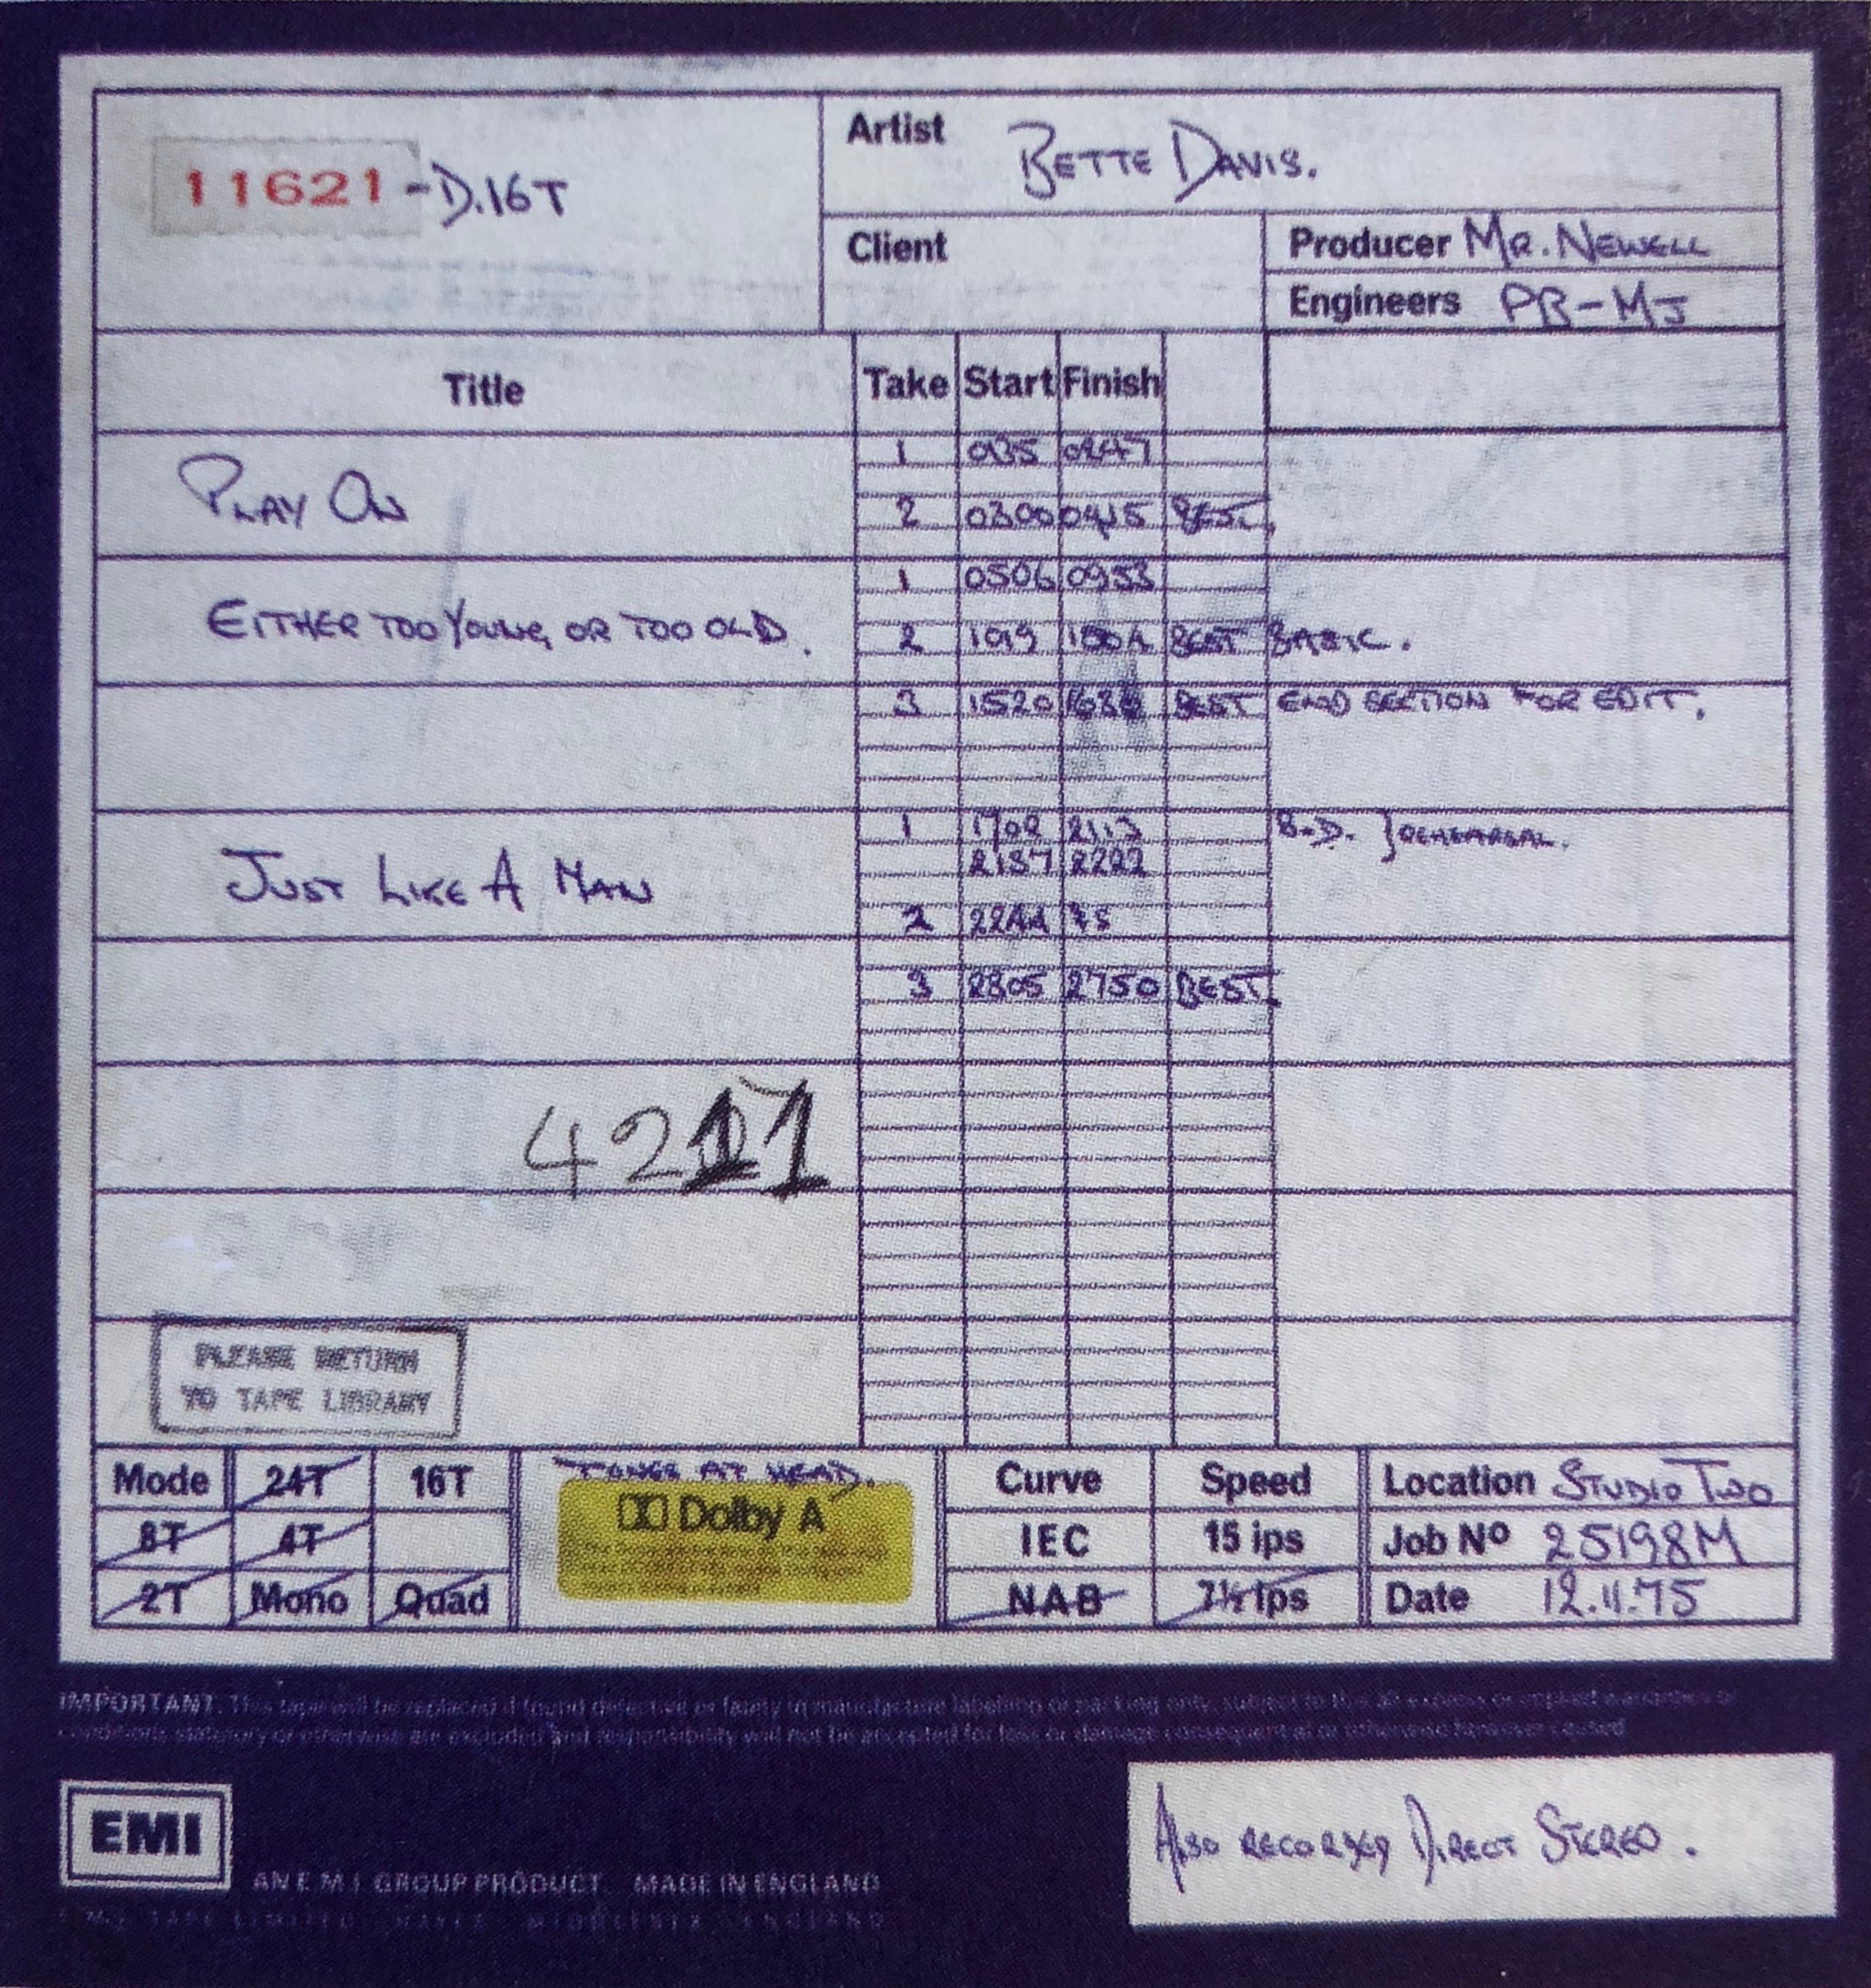 11621-D.16T
Artist BETTE DAVIS.
Client
Producer MR. NEWELL
Engineers PB-MJ
Title Take Start Finish
1 035 0247
PLAY ON
2 0300 0415 BEST.
1 0506 0953
EITHER TOO YOUNG OR TOO OLD.
2 1019 1504 BEST BASIC.
3 1520 BEST END SECTION FOR EDIT.
1 1708 2113 B.D.
2137 2222
JUST LIKE A MAN
2 2244 FS
3 2305 2750 BEST.
4211
PLEASE RETURN
TO TAPE LIBRARY
Mode 24T 16T
8T 4T
2T Mono Quad
TONES AT HEAD.
Dolby A
Curve Speed
IEC 15 ips
NAB 7½ ips
Location STUDIO TWO
Job Nº 25198M
Date 12.11.75
IMPORTANT. This tape will be replaced if found defective or faulty in manufacture labelling or packing only, subject to this all express or implied warranties or
conditions statutory or otherwise are excluded and responsibility will not be accepted for loss or damage consequent al or otherwise however caused
EMI
AN E.M.I. GROUP PRODUCT. MADE IN ENGLAND
TAPE LIMITED HAYES MIDDLESEX ENGLAND
ALSO RECORDED DIRECT STEREO.